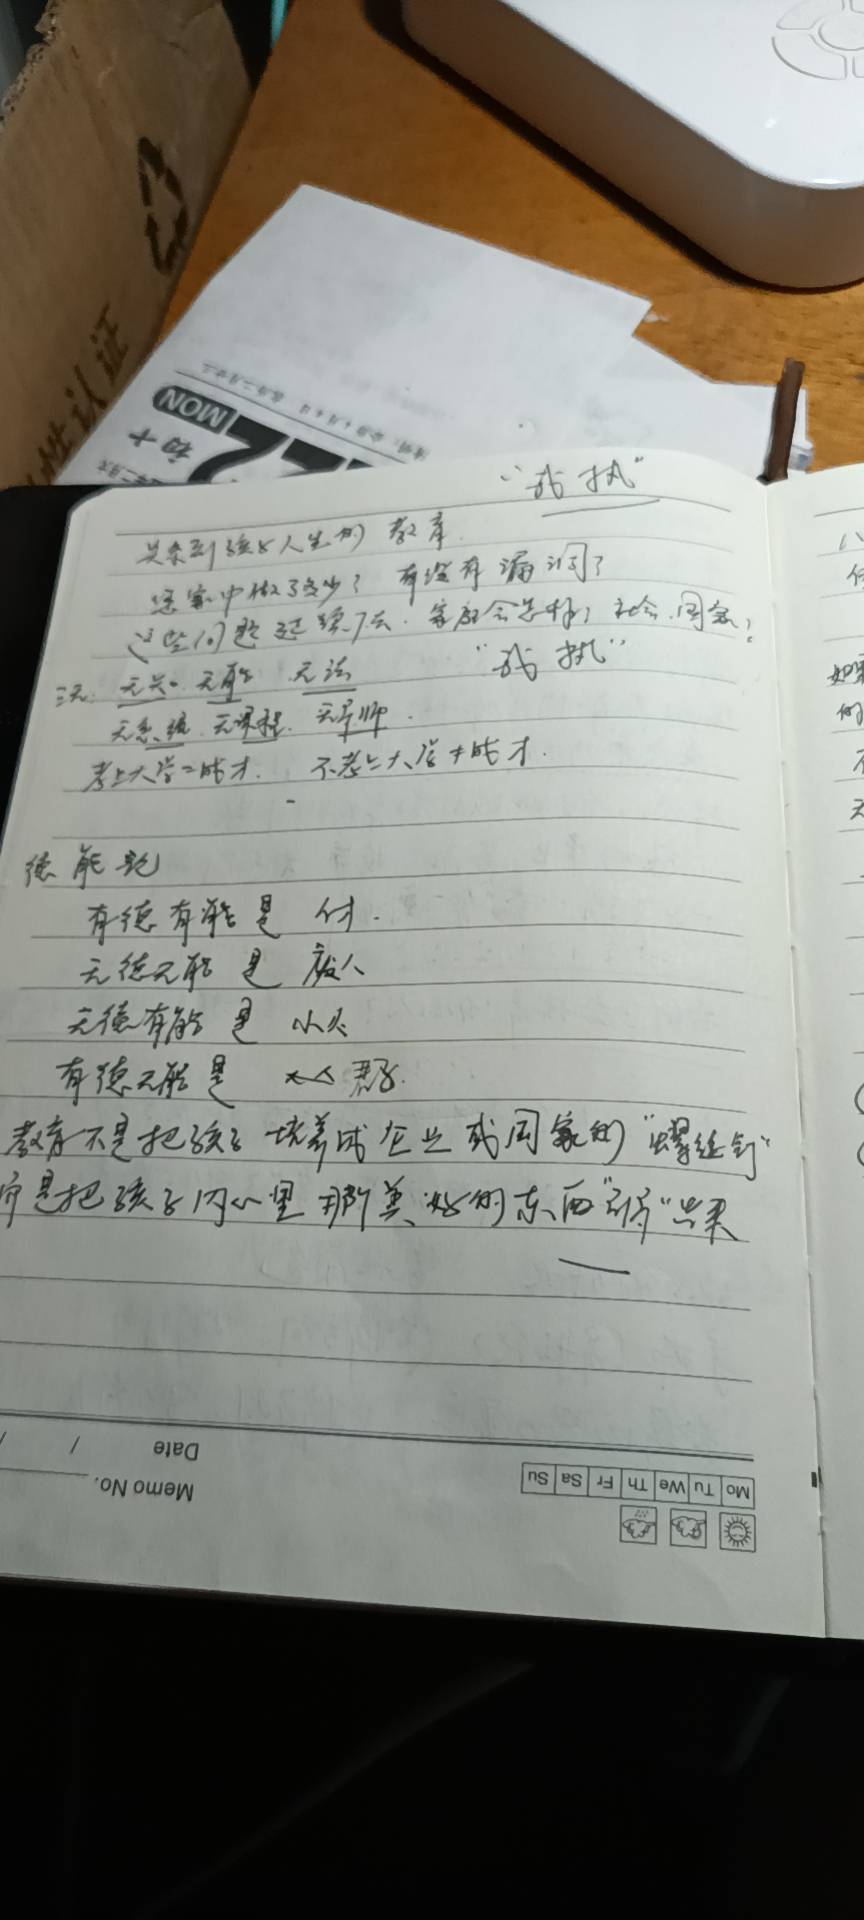 性认证
MON
初十
2
"我执"
关系到孩子人生的教育
您家中做了多少？有没有漏洞？
这些问题延续下去．家庭会怎样；社会．国家？
三无：无关．无能 无法 "我执"
无系统．无课程．无导师．
考上大学=成才． 不考上大学≠成才．
德能论
有德有能是
无德无能是 废人
无德有能是 小人
有德无能是 君子．
教育不是把孩子培养成企业或国家的"螺丝钉"
而是把孩子内心里那美好的东西"引"出来
Date / /
Memo No.
Mo Tu We Th Fr Sa Su
如果
的